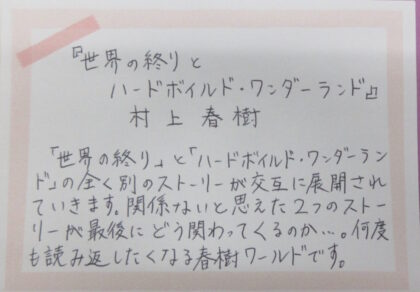 『世界の終りと
ハードボイルド・ワンダーランド』
村上春樹
「世界の終り」と「ハードボイルド・ワンダーラン
ド」の全く別のストーリーが交互に展開され
ていきます。関係ないと思えた2つのストー
リーが最後にどう関わってくるのか…。何度
も読み返したくなる春樹ワールドです。